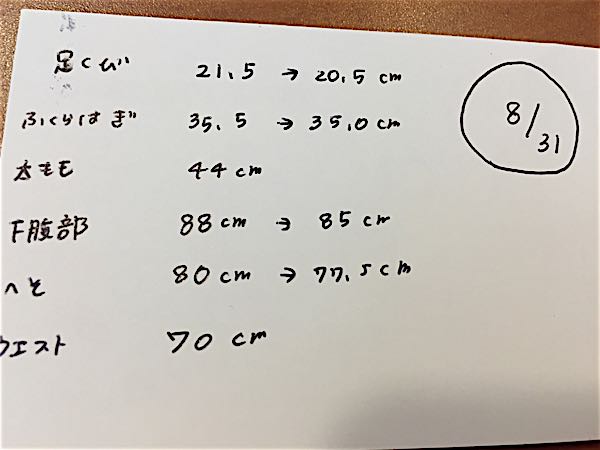 足くび 21.5 → 20.5 cm
8/31
ふくらはぎ 35.5 → 35.0 cm
太もも 44 cm
下腹部 88 cm → 85 cm
へそ 80 cm → 77.5 cm
ウエスト 70 cm